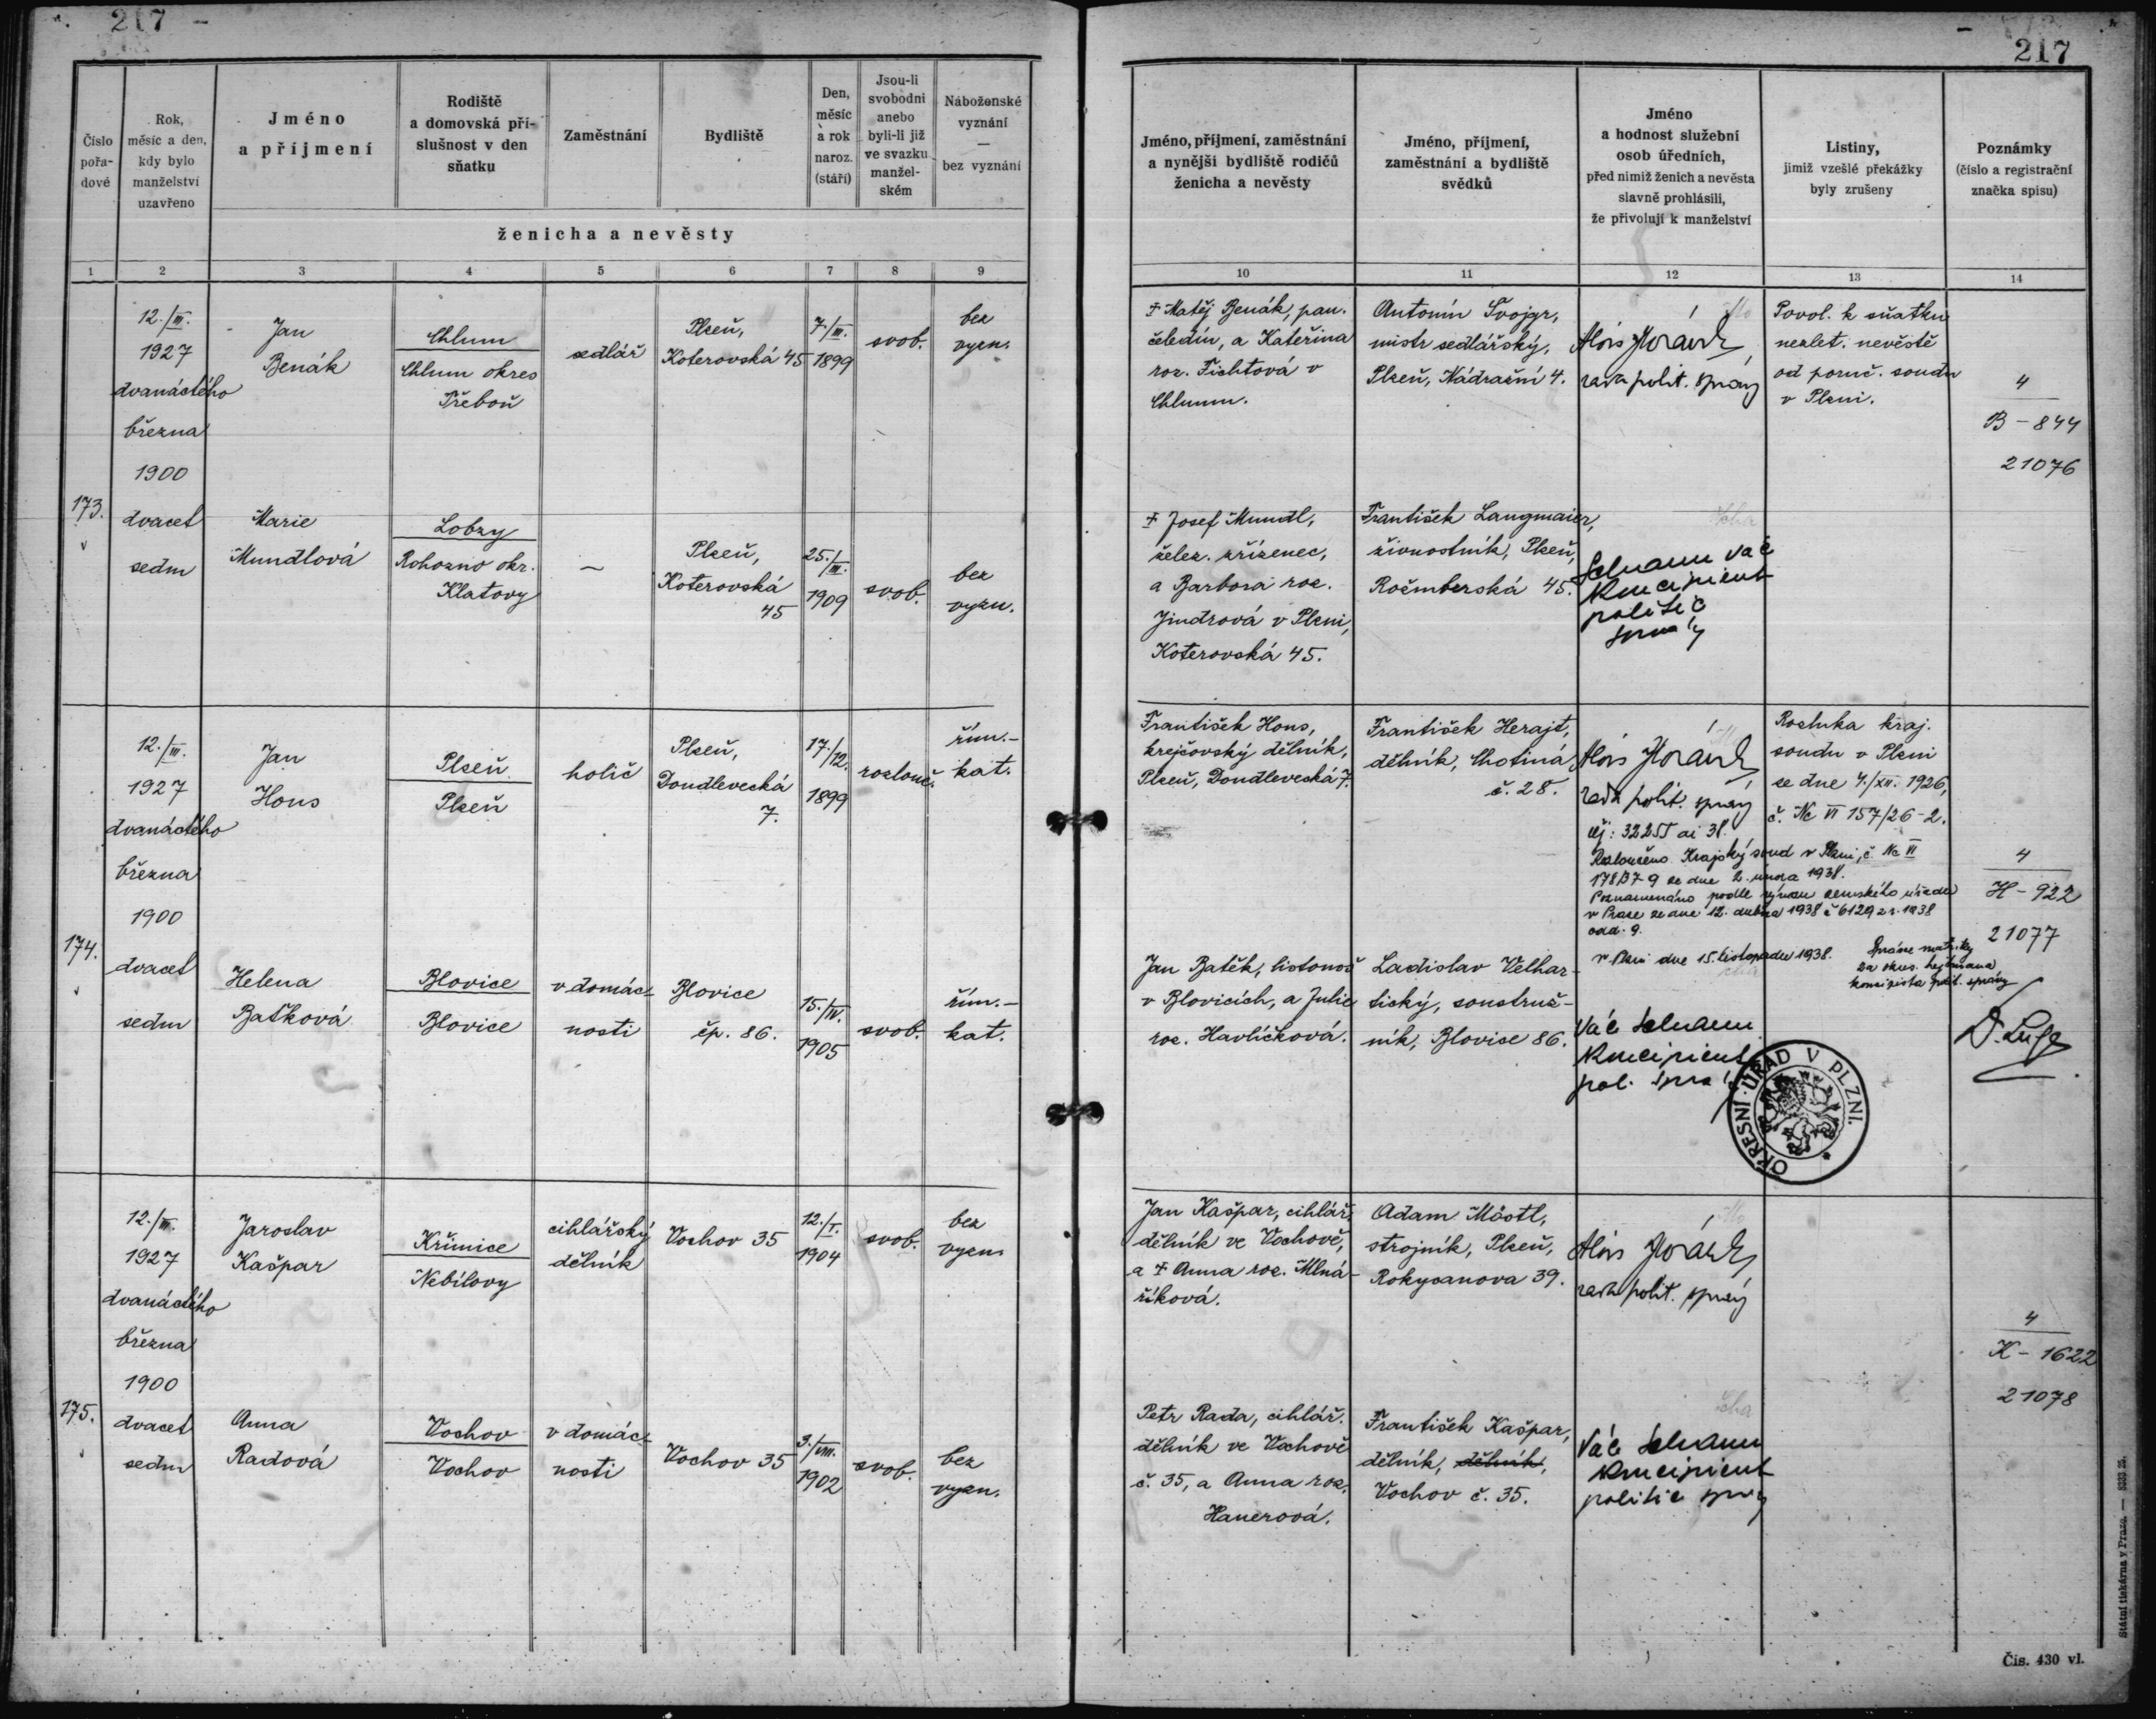 217
217
Číslo
pořa-
dové
Rok,
měsíc a den,
kdy bylo
manželství
uzavřeno
Jméno
a příjmení
Rodiště
a domovská pří-
slušnost v den
sňatku
Zaměstnání
Bydliště
Den,
měsíc
a rok
naroz.
(stáří)
Jsou-li
svobodni
anebo
byli-li již
ve svazku
manžel-
ském
Náboženské
vyznání
—
bez vyznání
ženicha a nevěsty
Jméno, příjmení, zaměstnání
a nynější bydliště rodičů
ženicha a nevěsty
Jméno, příjmení,
zaměstnání a bydliště
svědků
Jméno
a hodnost služební
osob úředních,
před nimiž ženich a nevěsta
slavně prohlásili,
že přivolují k manželství
Listiny,
jimiž vzešlé překážky
byly zrušeny
Poznámky
(číslo a registrační
značka spisu)
1 2 3 4 5 6 7 8 9 10 11 12 13 14
173.
12./III.
1927
dvanáctého
března
1900
dvacet
sedm
Jan
Benák
Chlum
Chlum okres
Třeboň
sedlář
Plzeň,
Koterovská 45
7./III.
1899
svob.
bez
vyzn.
† Matěj Benák, pan.
čeledín, a Kateřina
roz. Fichtová v
Chlumu.
Antonín Svojgr,
mistr sedlářský,
Plzeň, Nádražní 4.
Alois Horák
rada polit. správy
Povol. k sňatku
nezlet. nevěstě
od poruč. soudu
v Plzni.
4
B - 844
21076
Marie
Mundlová
Lobzy
Rohozno okr.
Klatovy
—
Plzeň,
Koterovská
45
25./III.
1909
svob.
bez
vyzn.
† Josef Mundl,
želez. zřízenec,
a Barbora roz.
Jindrová v Plzni,
Koterovská 45.
František Langmaier,
živnostník, Plzeň,
Rožmberská 45.
Václ
Koncipient
politic
správy
174.
12./III.
1927
dvanáctého
března
1900
dvacet
sedm
Jan
Hons
Plzeň
Plzeň
holič
Plzeň,
Doudlevecká
7.
17./12.
1899
rozlouč.
řím.-
kat.
František Hons,
krejčovský dělník,
Plzeň, Doudlevecká 7.
František Herajt,
dělník, Chotiná
č. 28.
Alois Horák
rada polit. správy
Rozluka kraj.
soudu v Plzni
ze dne 4./XII. 1926,
č. Nc VI 157/26-2.
Rozloučeno Krajský soud v Plzni, č. Nc VI
178/37-9 ze dne 2. února 1938.
Poznamenáno podle výnosu zemského úřadu
v Praze ze dne 12. dubna 1938 č 6129 z r. 1938
odd. 9.
v Plzni dne 15. listopadu 1938.
Správce matriky
za okres. hejtmana
koncipista polit. správy
4
H - 922
21077
Helena
Baťková
Blovice
Blovice
v domác-
nosti
Blovice
čp. 86.
15./IV.
1905
svob.
řím.-
kat.
Jan Batěk, listonoš
v Blovicích, a Julie
roz. Havlíčková.
Ladislav Velhar-
tický, soustruž-
ník, Blovice 86.
Václ
Koncipient
pol. správy
OKRESNÍ ÚŘAD V PLZNI.
175.
12./III.
1927
dvanáctého
března
1900
dvacet
sedm
Jaroslav
Kašpar
Křimice
Nebílovy
cihlářský
dělník
Vochov 35
12./I.
1904
svob.
bez
vyzn.
Jan Kašpar, cihlář.
dělník ve Vochově,
a † Anna roz. Mlná-
říková.
Adam Möstl,
strojník, Plzeň,
Rokycanova 39.
Alois Horák
rada polit. správy
4
K - 1622
21078
Anna
Radová
Vochov
Vochov
v domác-
nosti
Vochov 35
3./VIII.
1902
svob.
bez
vyzn.
Petr Rada, cihlář.
dělník ve Vochově
č. 35, a Anna roz.
Hanerová.
František Kašpar,
dělník, dělník,
Vochov č. 35.
Václ
Koncipient
politic správy
Státní tiskárna v Praze. — 3333 25.
Čís. 430 vl.